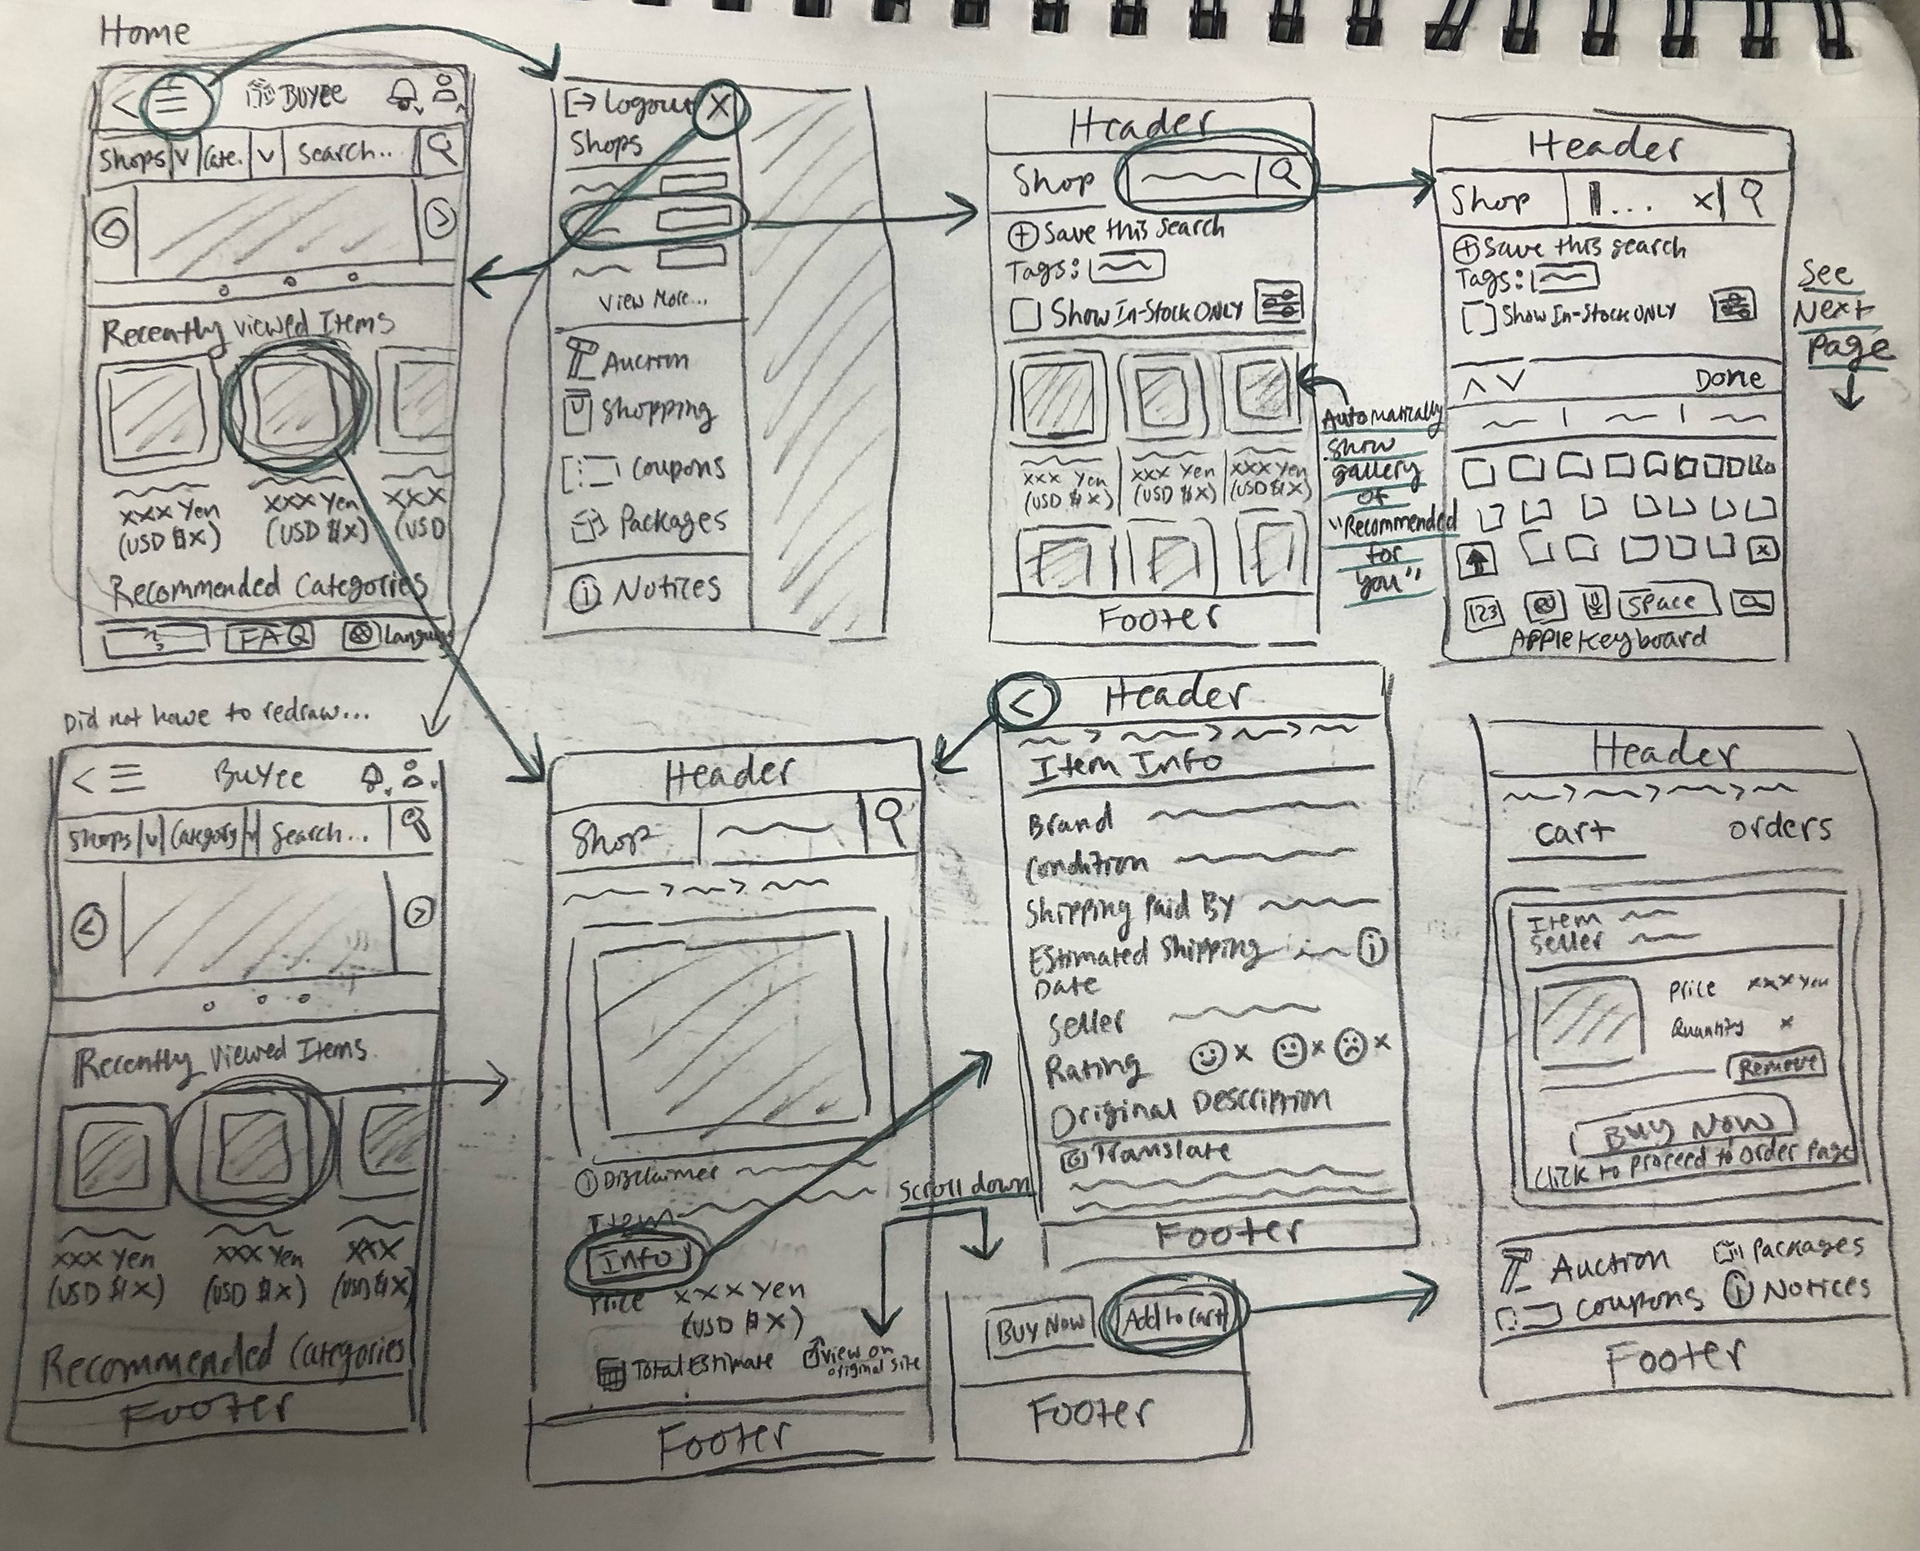 Home
Buyee
Shops
Cate.
Search...
Recently Viewed Items
xxx Yen
(USD $x)
xxx Yen
(USD $x)
xxx
(USD
Recommended Categories
?
FAQ
Language
Logout X
Shops
View More...
Auction
Shopping
Coupons
Packages
Notices
Header
Shop
Save this search
Tags:
Show In-Stock ONLY
xxx Yen
(USD $x)
xxx Yen
(USD $x)
xxx Yen
(USD $x)
Footer
Automatically
show
gallery
of
"Recommended
for
you"
Header
Shop
... x
Save this search
Tags:
Show In-Stock ONLY
Done
123
space
Apple Keyboard
See
Next
Page
Did not have to redraw...
Buyee
Shops
Category
Search...
Recently Viewed Items
xxx Yen
(USD $x)
xxx Yen
(USD $x)
xxx
(USD $x)
Recommended Categories
Footer
Header
Shop
Disclaimer
Item
Info
Price xxx Yen
(USD $x)
Total Estimate
View on
original site
Footer
Scroll down
Header
Item Info
Brand
Condition
Shipping Paid By
Estimated Shipping
Date
Seller
Rating x x x
Original Description
Translate
Footer
Buy Now
Add to cart
Footer
Header
Cart
Orders
Item
Seller
Price xxx Yen
Quantity x
Remove
Buy Now
Click to proceed to order page
Auction
Packages
Coupons
Notices
Footer